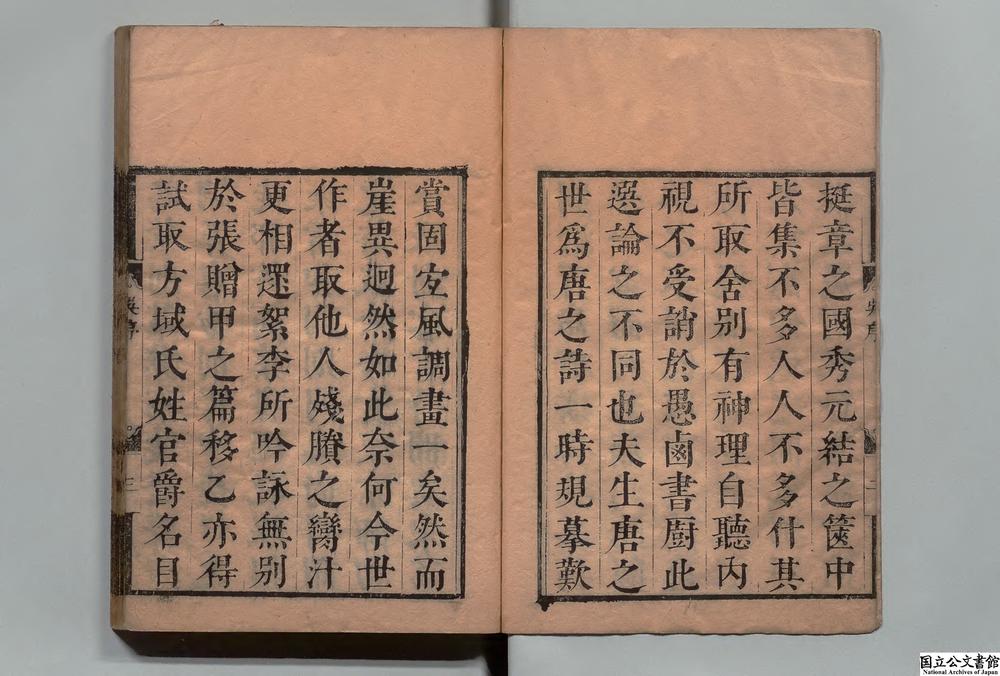 挺章之國秀元結之篋中
皆集不多人人不多什其
所取舍別有神理自聽內
視不受誚於愚鹵書厨此
選論之不同也夫生唐之
世爲唐之詩一時規摹歎
吳序
二
賞固宜風調畫一矣然而
崖異迥然如此奈何今世
作者取他人殘賸之臠汁
更相還絮李所吟詠無別
於張贈甲之篇移乙亦得
試取方域氏姓官爵名目
吳序
三
国立公文書館
National Archives of Japan